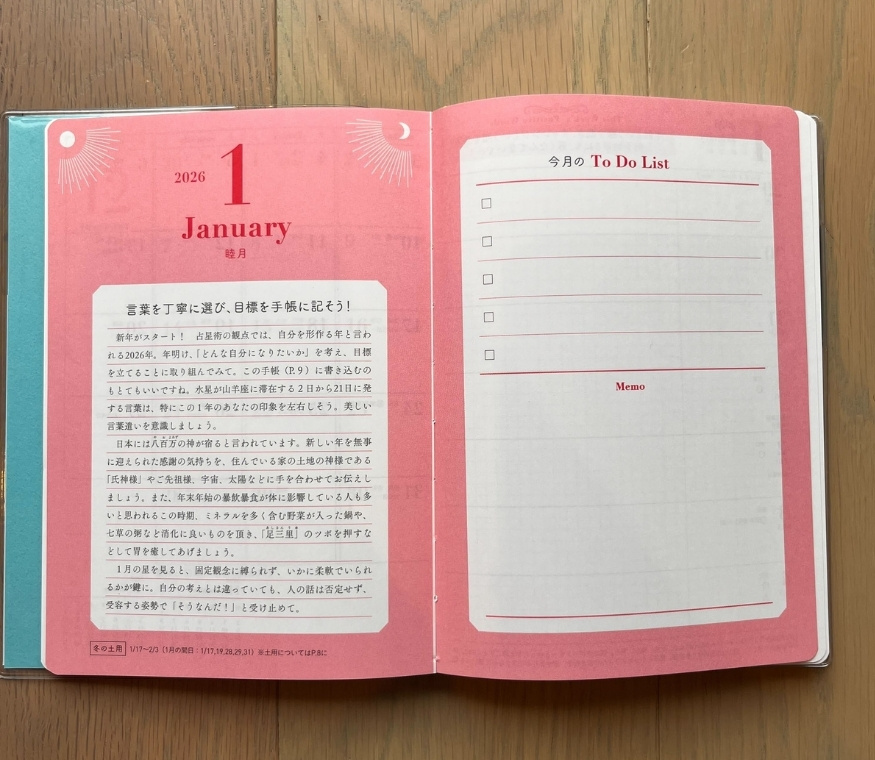 2026
1
January
睦月
言葉を丁寧に選び、目標を手帳に記そう！
新年がスタート！　占星術の観点では、自分を形作る年と言わ
れる2026年。年明け、「どんな自分になりたいか」を考え、目標
を立てることに取り組んでみて。この手帳（P.9）に書き込むの
もとてもいいですね。水星が山羊座に滞在する２日から21日に発
する言葉は、特にこの１年のあなたの印象を左右しそう。美しい
言葉遣いを意識しましょう。
日本には八百万の神が宿ると言われています。新しい年を無事
に迎えられた感謝の気持ちを、住んでいる家の土地の神様である
「氏神様」やご先祖様、宇宙、太陽などに手を合わせてお伝えし
ましょう。また、年末年始の暴飲暴食が体に影響している人も多
いと思われるこの時期、ミネラルを多く含む野菜が入った鍋や、
七草の粥など消化に良いものを頂き、「足三里」のツボを押すな
どして胃を癒してあげましょう。
１月の星を見ると、固定観念に縛られず、いかに柔軟でいられ
るかが鍵に。自分の考えとは違っていても、人の話は否定せず、
受容する姿勢で「そうなんだ！」と受け止めて。
冬の土用 1/17〜2/3（1月の間日：1/17,19,28,29,31）※土用についてはP.8に
今月の To Do List
Memo